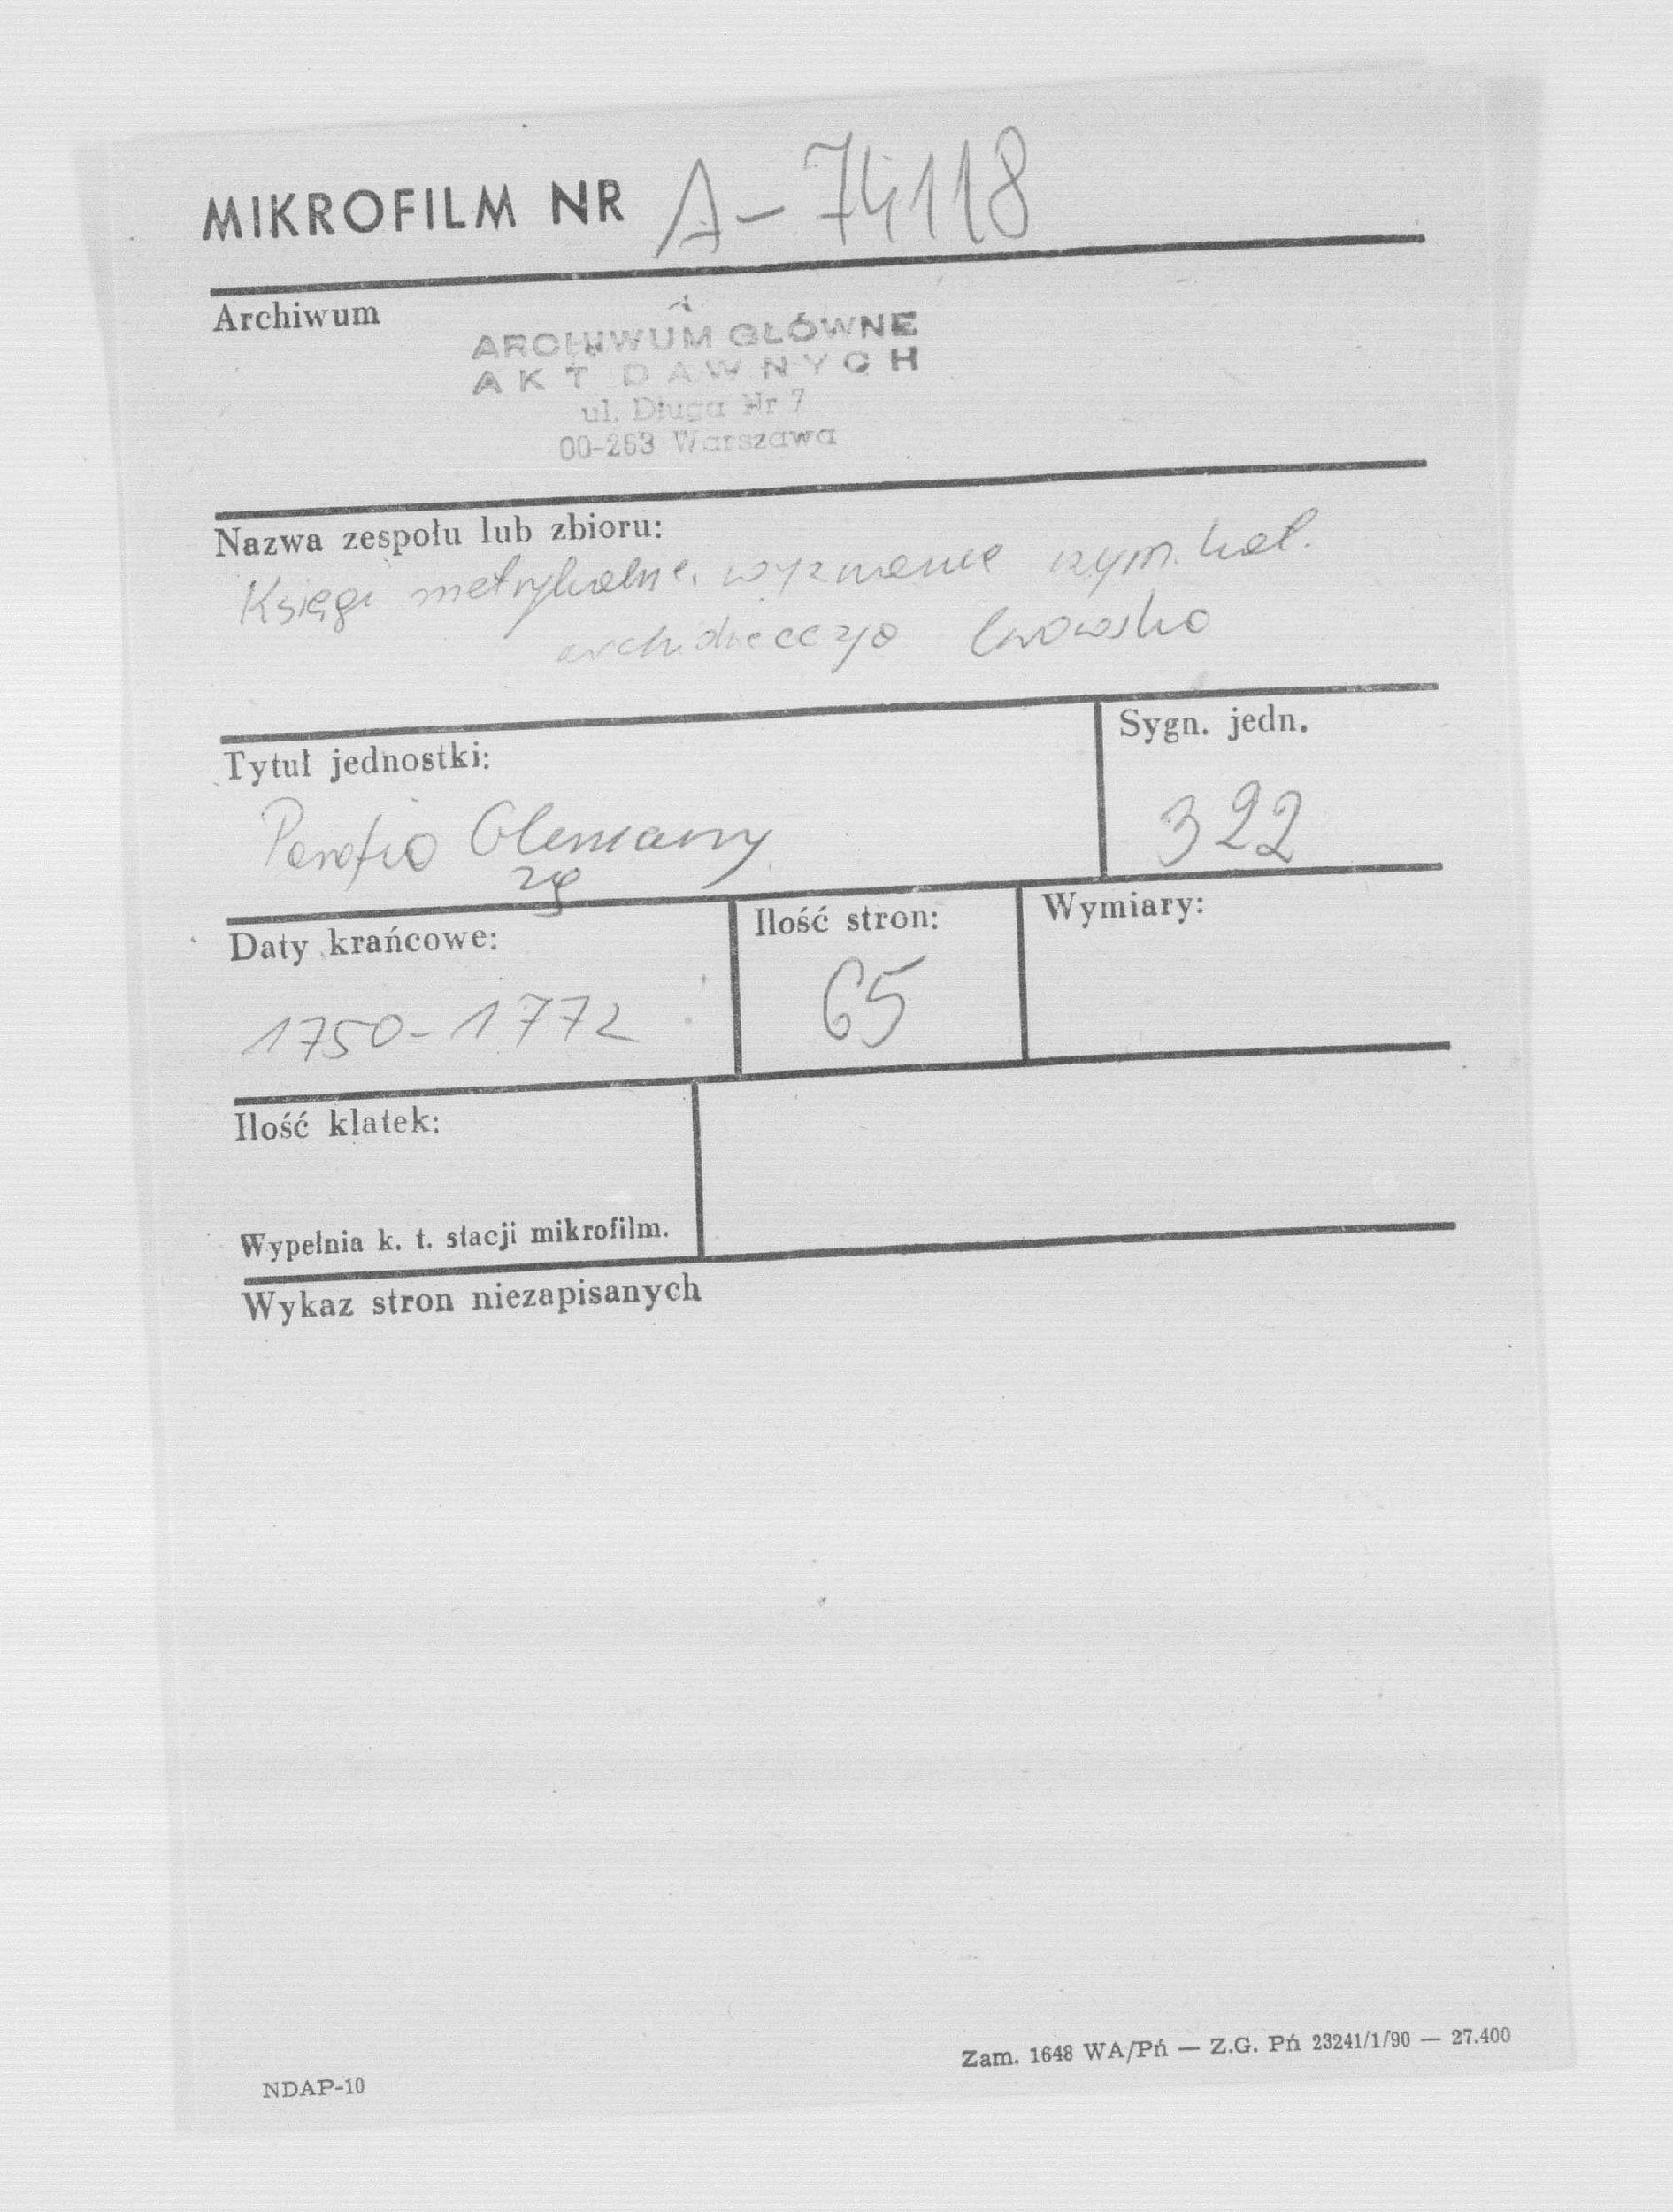 MIKROFILM NR A-74118
Archiwum
ARCHIWUM GŁÓWNE
AKT DAWNYCH
ul. Długa Nr 7
00-263 Warszawa
Nazwa zespołu lub zbioru:
Księgi metrykalne, wyznanie rzym. kat.
archidiecezja lwowska
Tytuł jednostki:
Sygn. jedn.
Parafia Gliniany
322
zg
Daty krańcowe:
Ilość stron:
Wymiary:
1750-1772
65
Ilość klatek:
Wypełnia k. t. stacji mikrofilm.
Wykaz stron niezapisanych
Zam. 1648 WA/Pń — Z.G. Pń 23241/1/90 — 27.400
NDAP-10